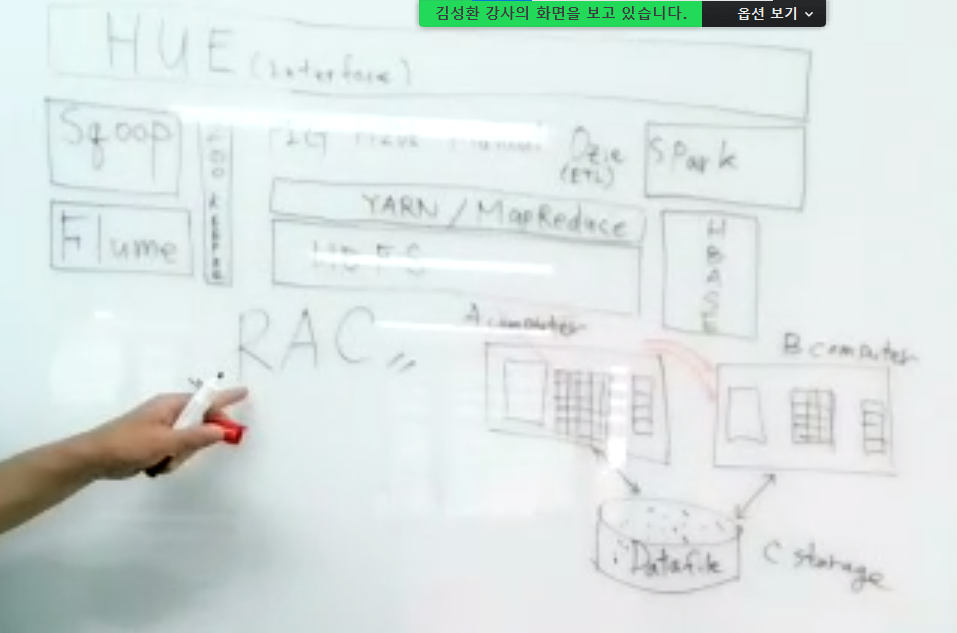 김성환 강사의 화면을 보고 있습니다.
옵션 보기
HUE (interface)
Sqoop
Oozie
(ETL)
Spark
YARN / MapReduce
Flume
HDFS
HBASE
RAC
A computer
B computer
Datafile
C storage